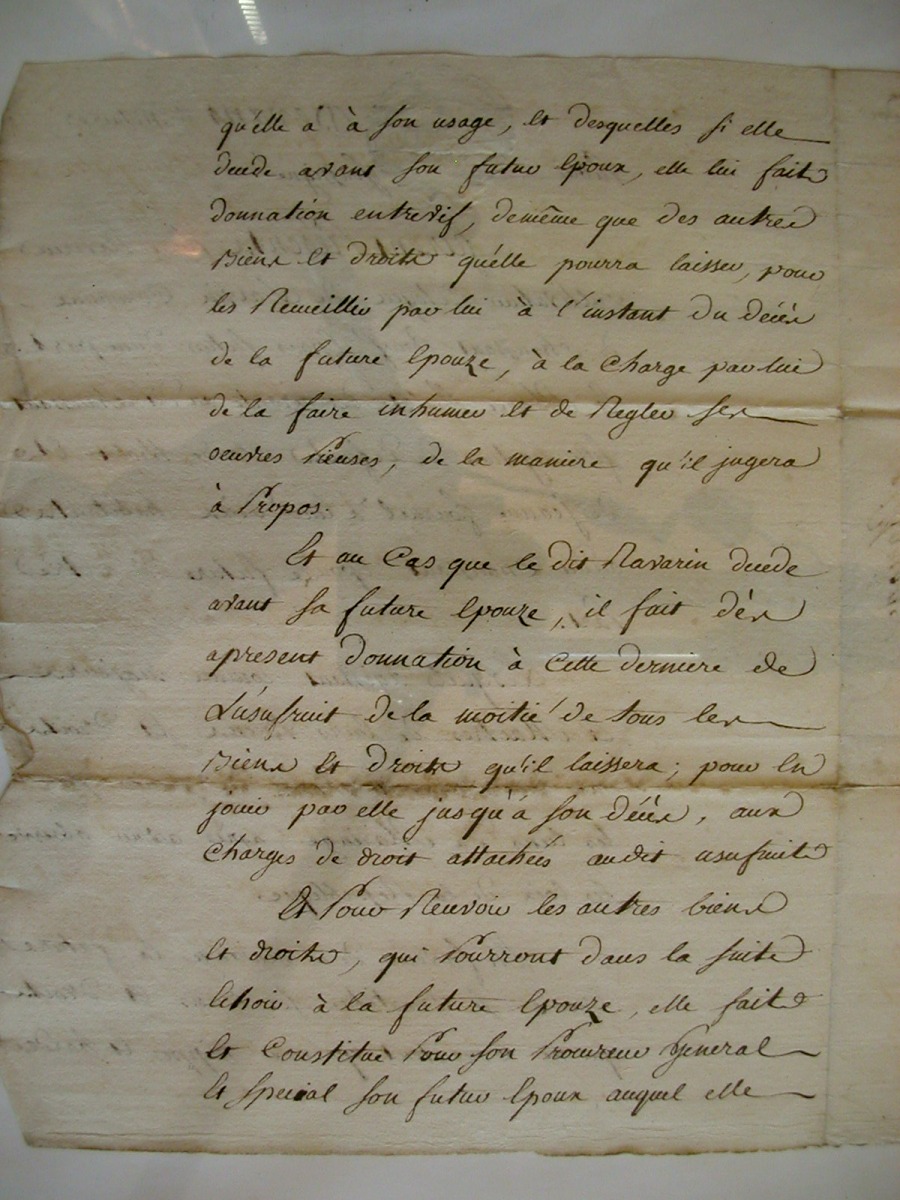 qu'elle a à son usage, et desquelles si elle
decede avant son futur epoux, elle lui fait
donnation entrevif, demême que des autres
biens et droits qu'elle pourra laisser, pour
les Recueillir par lui à l'instant du décès
de la future epouze, à la charge par lui
de la faire inhumer et de Regler ses
oeuvres Pieuses, de la maniere qu'il jugera
à Propos.
Et au Cas que le dit Navarin decede
avant sa future epouze, il fait dès
apresent donnation à cette derniere de
L'usufruit de la moitié de tous les
biens et droits qu'il laissera; pour en
jouir par elle jusqu'à son décès, aux
charges de droit attachées audit usufruit
Et Pour Recevoir les autres biens
et droits, qui Pourront dans la suite
echoir à la future epouze, elle fait
et Constitue Pour son Procureur General
et special son futur epoux auquel elle